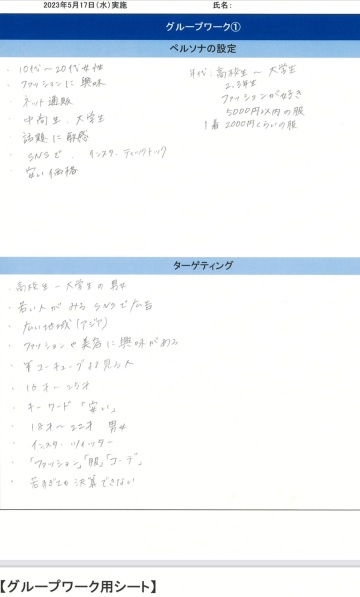 2023年5月17日(水)実施 氏名:
グループワーク①
ペルソナの設定
・10代~20代女性
・ファッションに興味
・ネット通販
・中高生、大学生
・話題に敏感
・SNSで、インスタ・ティックトック
・安い価格
年代:高校生~大学生
2.3年生
ファッションが好き
5000円以内の服
1着2000円くらいの服
ターゲティング
・高校生~大学生の男女
・若い人がみるSNSで広告
・広い地域(アジア)
・ファッションや美容に興味がある
・ユーチューブよく見る人
・16才~25才
・キーワード「安い」
・18才~22才 男女
・インスタ・ツイッター
・「ファッション」「服」「コーデ」
・若すぎても決算できない
【グループワーク用シート】